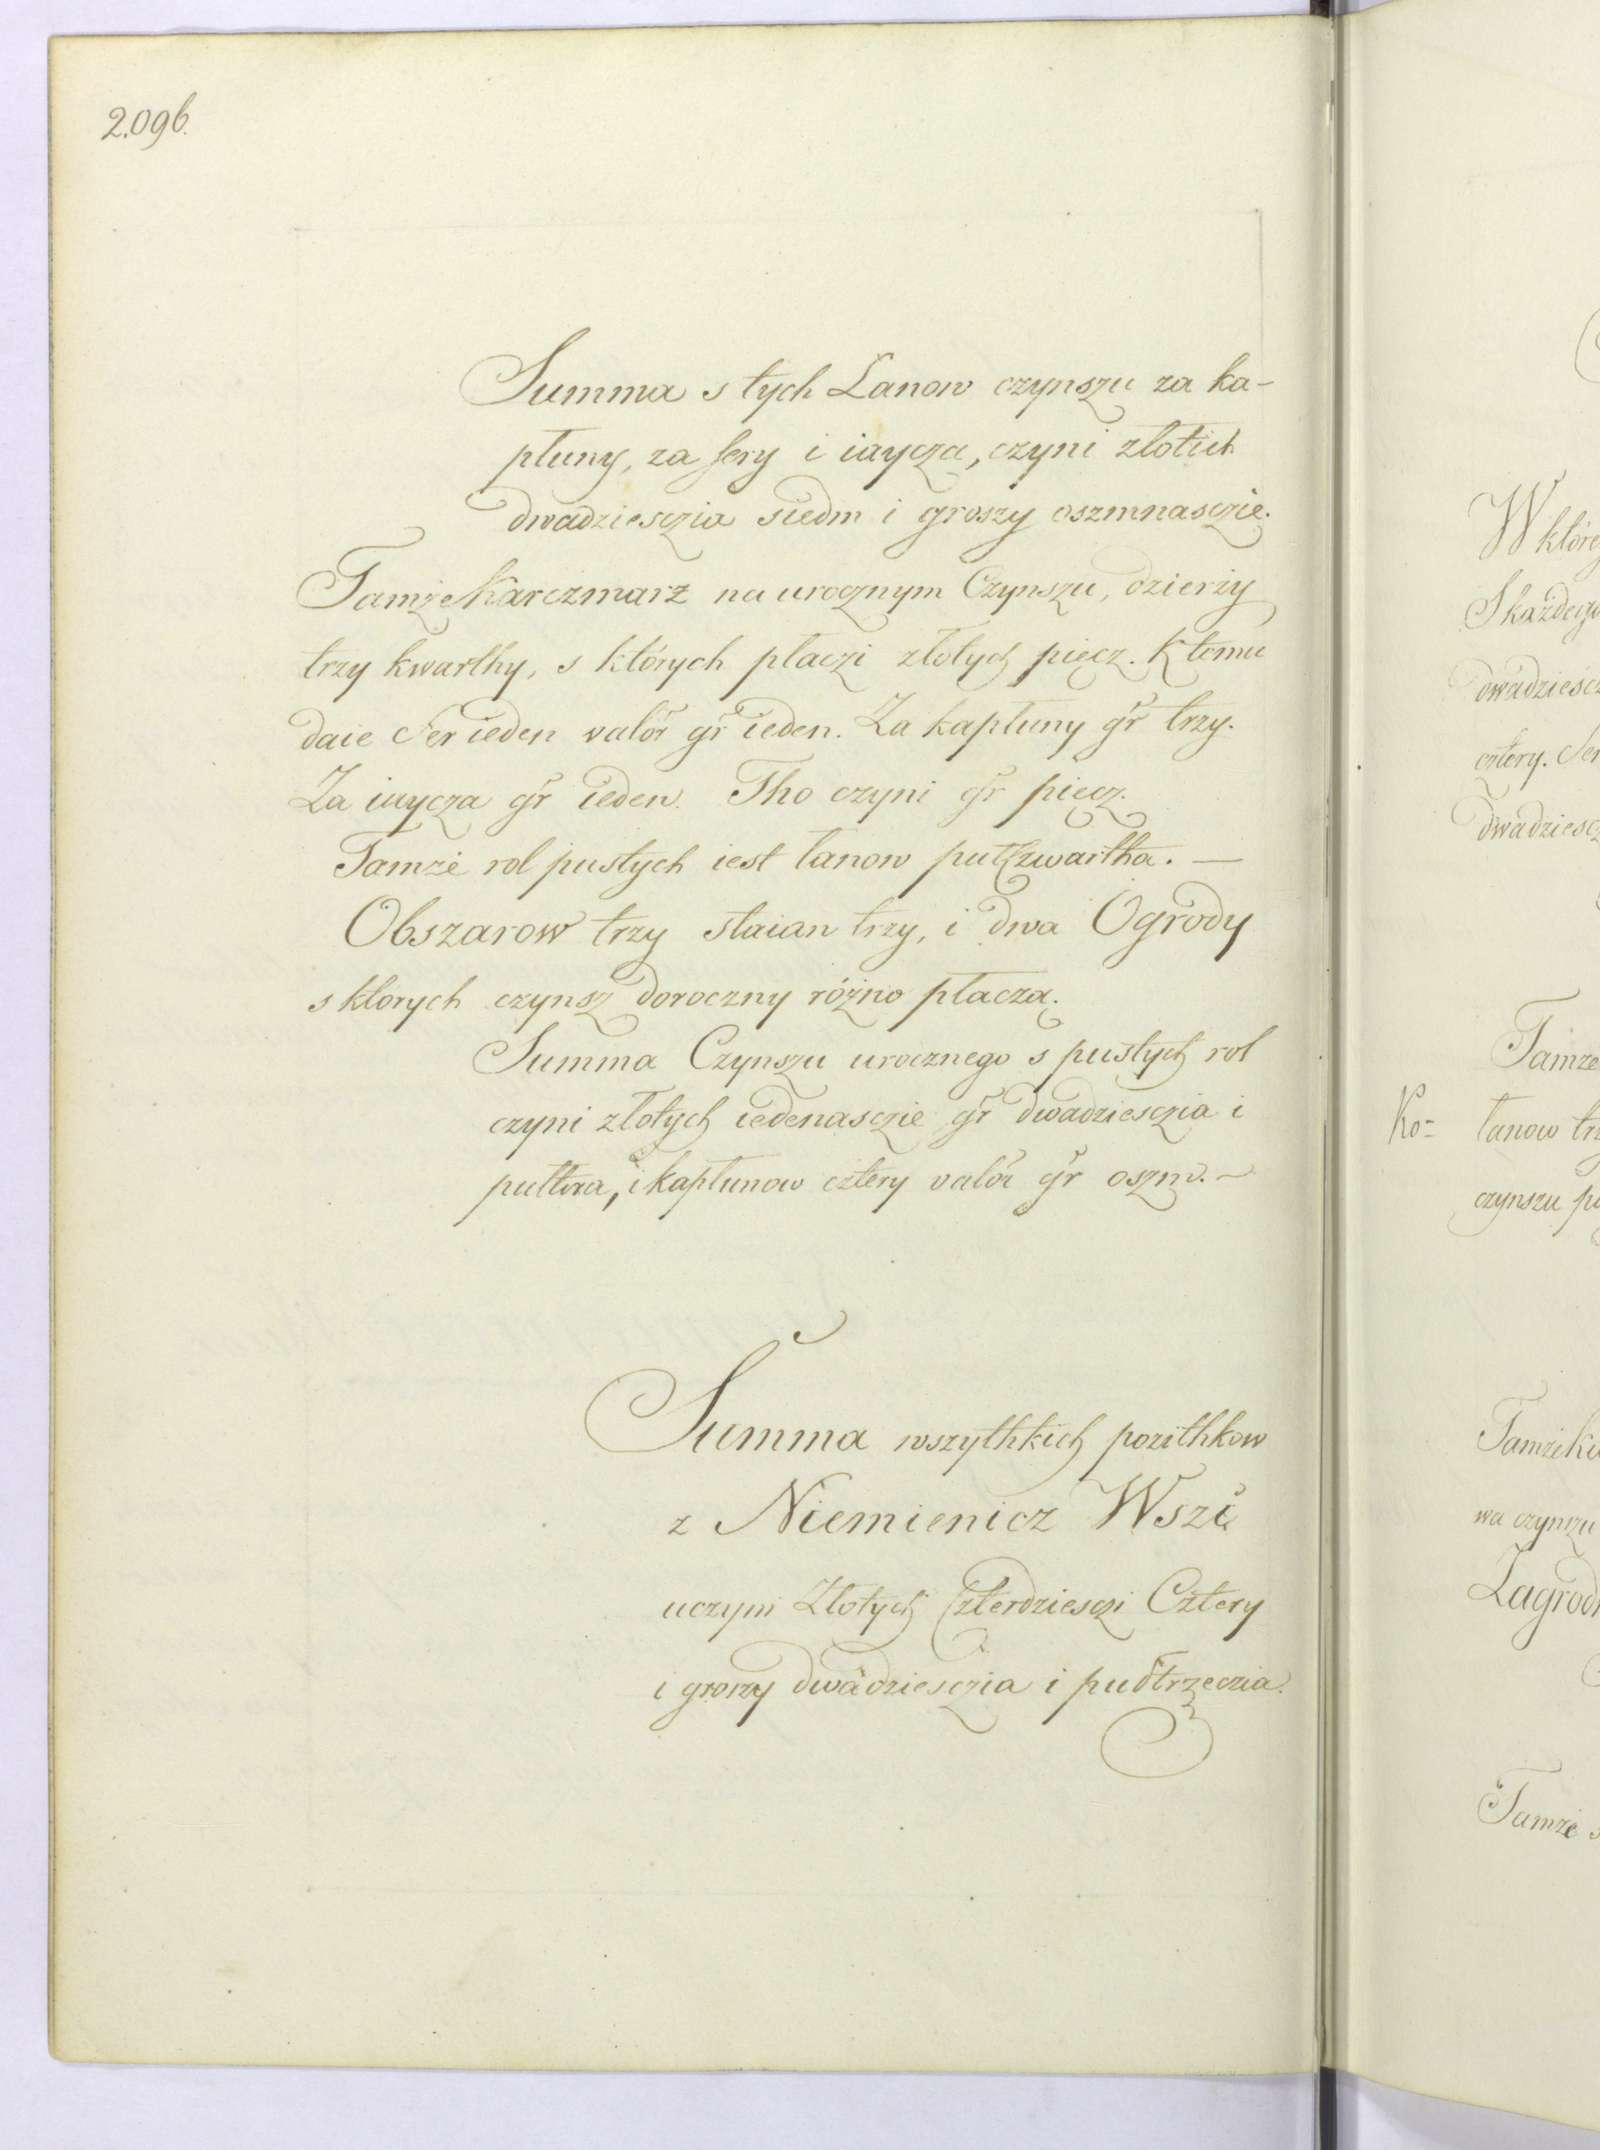 2.096.
Summa s tych Łanow czynszu za ka-
płuny, za sery i iaycza, czyni złotich
dwadziesczia siedm i groszy oszmnasczie.
Tamże Karczmarz na urocznym Czynszu, dzierży
trzy kwarthy, s których płaczi złotych pięcz. K temu
daie Ser ieden valór gr ieden. Za kapłuny gr trzy.
Za iaycza gr ieden. Tho czyni gr pięcz.
Tamże rol pustych iest łanow pułczwartha. —
Obszarow trzy staian trzy, i dwa Ogrody
s których czynsz doroczny różno płaczą.
Summa Czynszu urocznego s pustych rol
czyni złotych iedenasczie gr dwadziesczia i
pułtora, i kapłunow cztery valór gr oszm. —
Summa wszythkich pozithkow
z Niemienicz Wszi
uczyni Złotych Czterdziesczi Cztery
i groszy dwadziesczia i pułtrzeczia.
W które
S każdego
dwadziesc
cztery. Ser
dwadziesc
Tamże
Ko=
łanow trz
czynszu pu
Tamże
wa czynszu
Zagrod
Tamże s